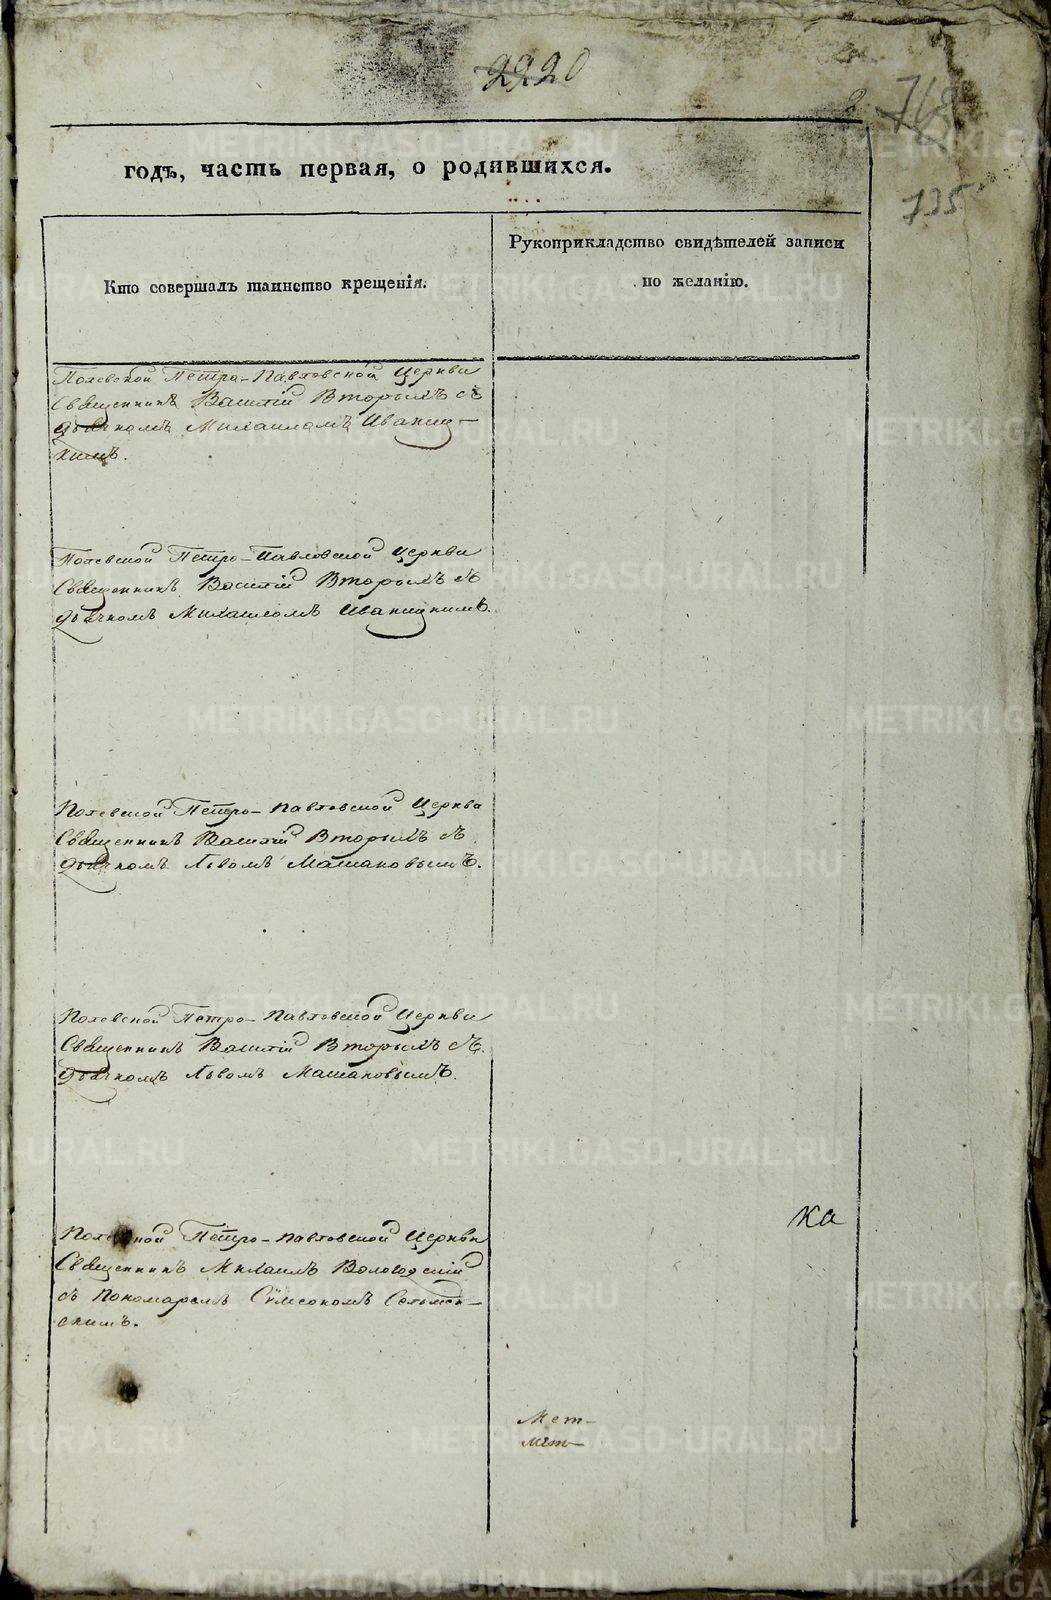 2220
2
735
годъ, часть первая, о родившихся.
Кто совершалъ таинство крещенія.
Рукоприкладство свидѣтелей записи
по желанію.
Полевской Петро-Павловской Церкви
Священникъ Василій Вторыхъ съ
дьячкомъ Михаиломъ Иваниц-
кимъ.
Полевской Петро-Павловской Церкви
Священникъ Василій Вторыхъ съ
дьячкомъ Михаиломъ Иваницкимъ.
Полевской Петро-Павловской Церкви
Священникъ Василій Вторыхъ съ
дьячкомъ Львомъ Машановымъ.
Полевской Петро-Павловской Церкви
Священникъ Василій Вторыхъ съ
дьячкомъ Львомъ Машановымъ.
Полевской Петро-Павловской Церкви
Священникъ Михаилъ Вологодскій
съ Пономаремъ Сѵмеономъ
скимъ.
ка
Мет-
мет-
METRIKI.GASO-URAL.RU